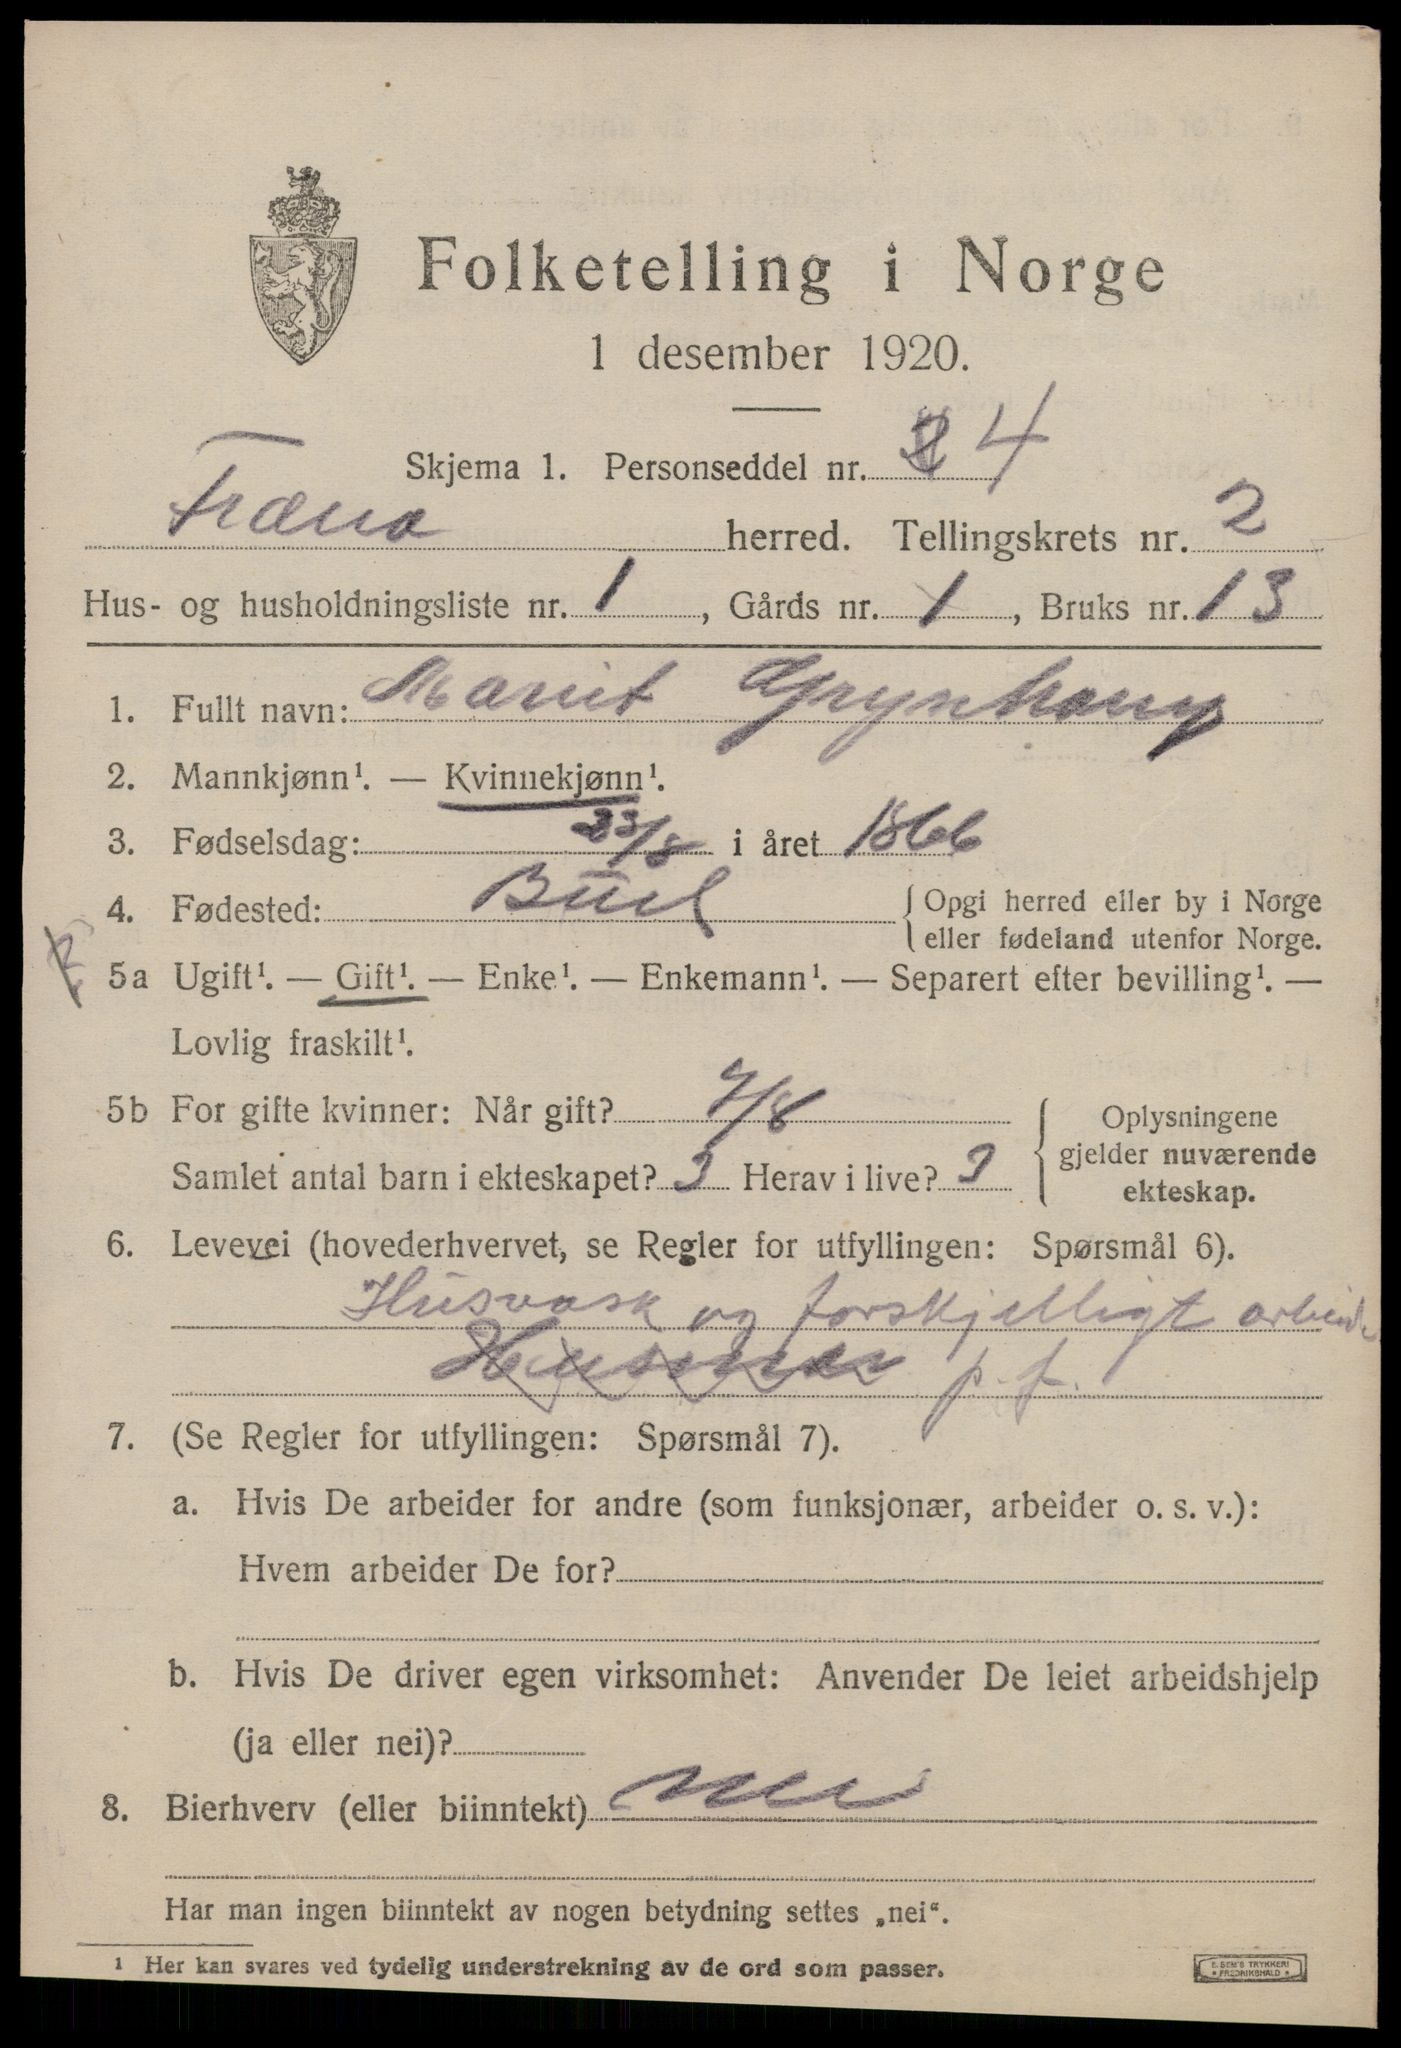 Folketelling i Norge
1 desember 1920.
Skjema 1. Personseddel nr. 4
Fræna herred. Tellingskrets nr. 2
Hus- og husholdningsliste nr. 1, Gårds nr. 1, Bruks nr. 13
1. Fullt navn: Marit
2. Mannkjønn¹. — Kvinnekjønn¹.
3. Fødselsdag: 23/8 i året 1866
4. Fødested: Bud { Opgi herred eller by i Norge
eller fødeland utenfor Norge.
5a Ugift¹. — Gift¹. — Enke¹. — Enkemann¹. — Separert efter bevilling¹. —
Lovlig fraskilt¹.
5b For gifte kvinner: Når gift? 7/8
Samlet antal barn i ekteskapet? 3 Herav i live? 3
{ Oplysningene
gjelder nuværende
ekteskap.
6. Levevei (hovederhvervet, se Regler for utfyllingen: Spørsmål 6).
Husvask og forskjelligt arbeide
Husmor p. f.
7. (Se Regler for utfyllingen: Spørsmål 7).
a. Hvis De arbeider for andre (som funksjonær, arbeider o. s. v.):
Hvem arbeider De for?
b. Hvis De driver egen virksomhet: Anvender De leiet arbeidshjelp
(ja eller nei)?
8. Bierhverv (eller biinntekt) nei
Har man ingen biinntekt av nogen betydning settes „nei“.
¹ Her kan svares ved tydelig understrekning av de ord som passer.
E. SEM'S TRYKKERI
• FREDRIKSHALD •